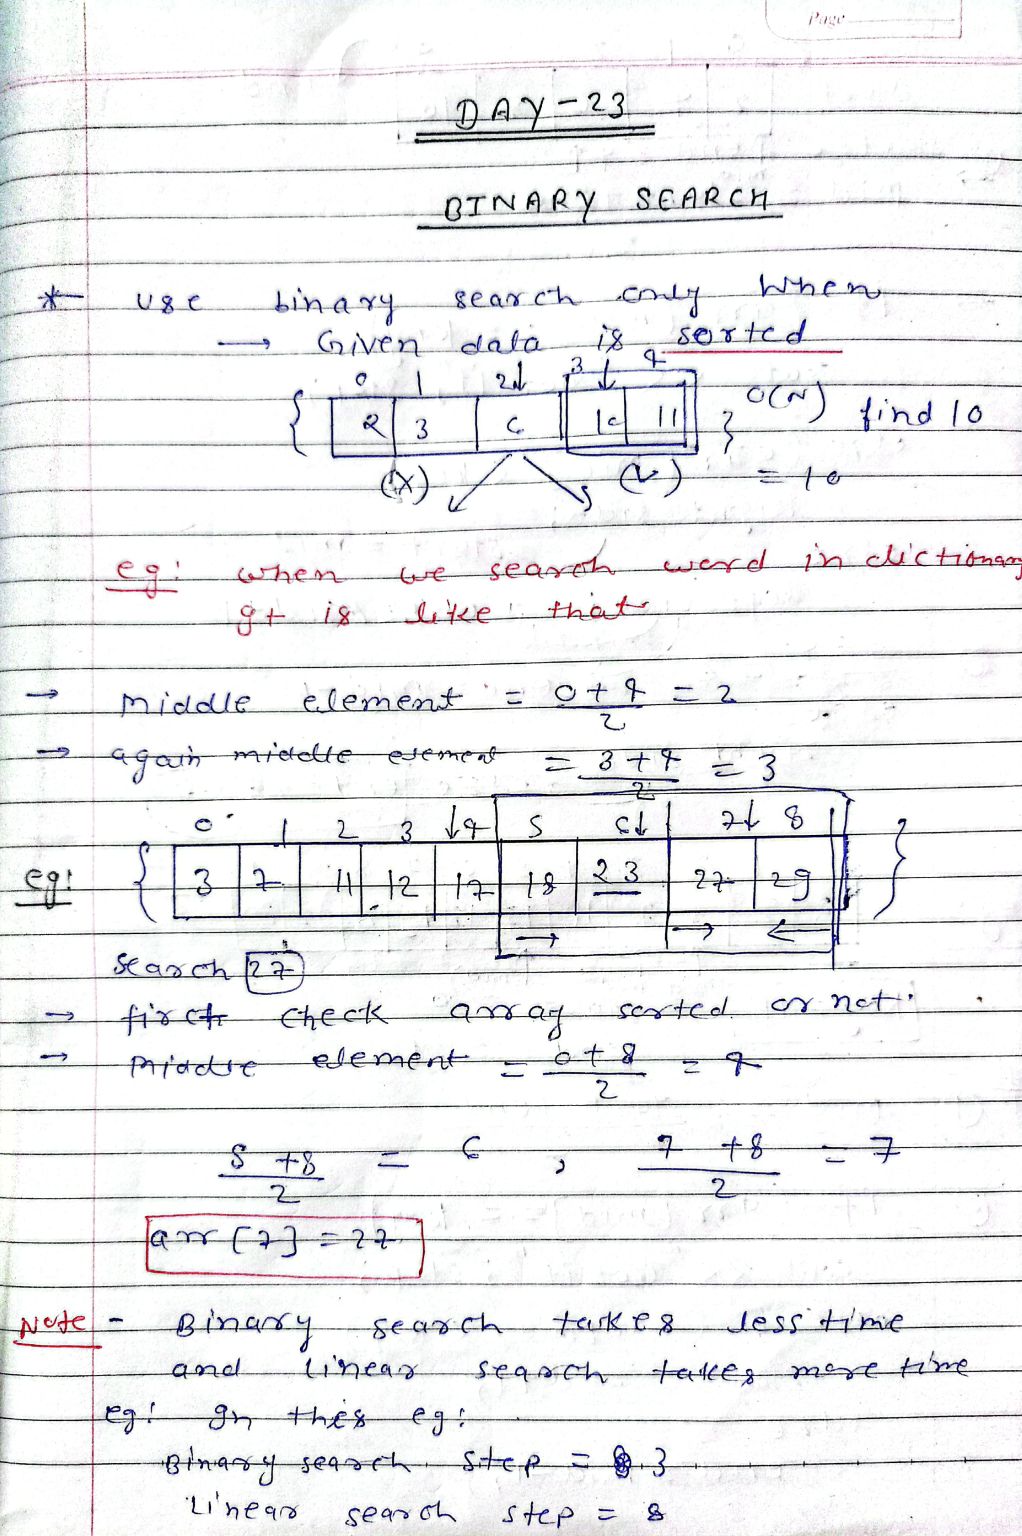 Page
DAY-23
BINARY SEARCH
* use binary search only when
→ Given data is sorted
0 1 2↓ 3↓ 4
{ 2 3 6 10 11 } O(N) find 10
(x) (✓) = 10
eg: when we search word in dictionary
It is like that
→ middle element = 0+4/2 = 2
→ again middle element = 3+4/2 = 3
0 1 2 3 ↓4 5 6↓ 7↓ 8
eg: { 3 7 11 12 17 18 23 27 29 }
→ → ←
search 27
→ first check array sorted or not.
→ Middle element = 0+8/2 = 4
5+8/2 = 6 , 7+8/2 = 7
arr[7] = 27
Note - Binary search takes less time
and linear search takes more time
eg: In this eg:
Binary search step = 3
Linear search step = 8